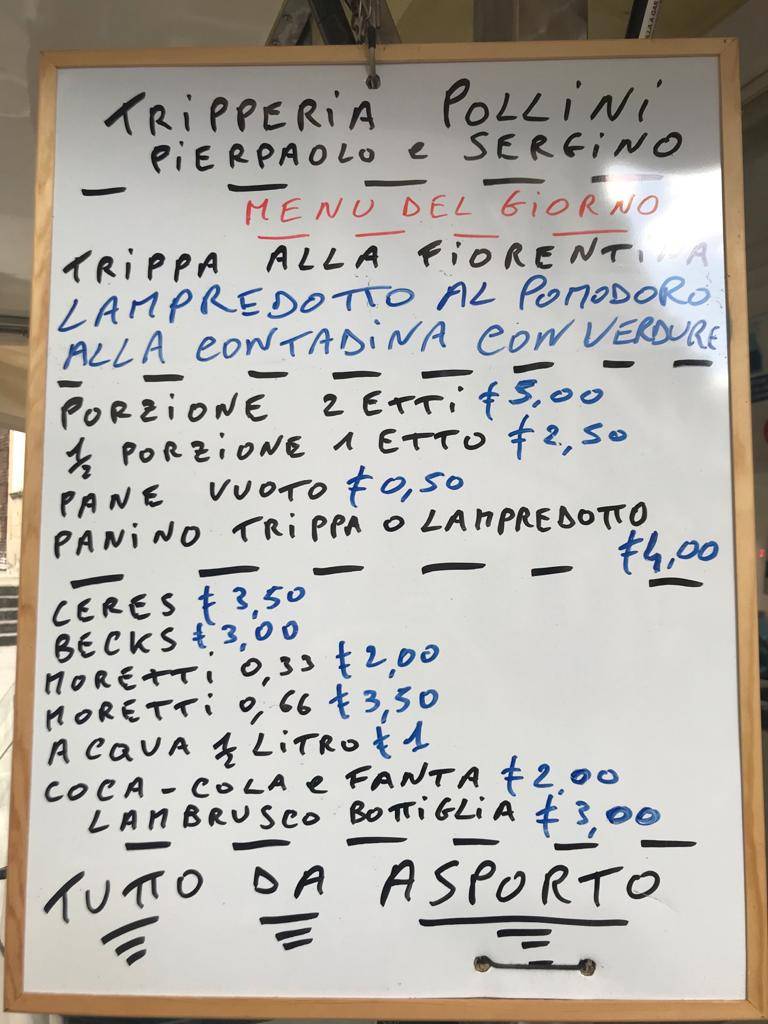 TRiPPERiA POLLiNi
PiERPAOLO e SERGiNO
MENU DEL GiORNO
TRiPPA ALLA FiORENTiNA
LAMPREDOTTO AL POMODORO
ALLA CONTADiNA CON VERDURE
PORZiONE 2 ETTi € 5,00
½ PORZiONE 1 ETTO € 2,50
PANE VUOTO € 0,50
PANiNO TRiPPA O LAMPREDOTTO
€4,00
CERES € 3,50
BECKS € 3,00
MORETTi 0,33 € 2,00
MORETTi 0,66 € 3,50
ACQUA ½ LiTRO € 1
COCA-COLA e FANTA € 2,00
LAMBRUSCO BOTTiGLiA € 3,00
TUTTO DA ASPORTO